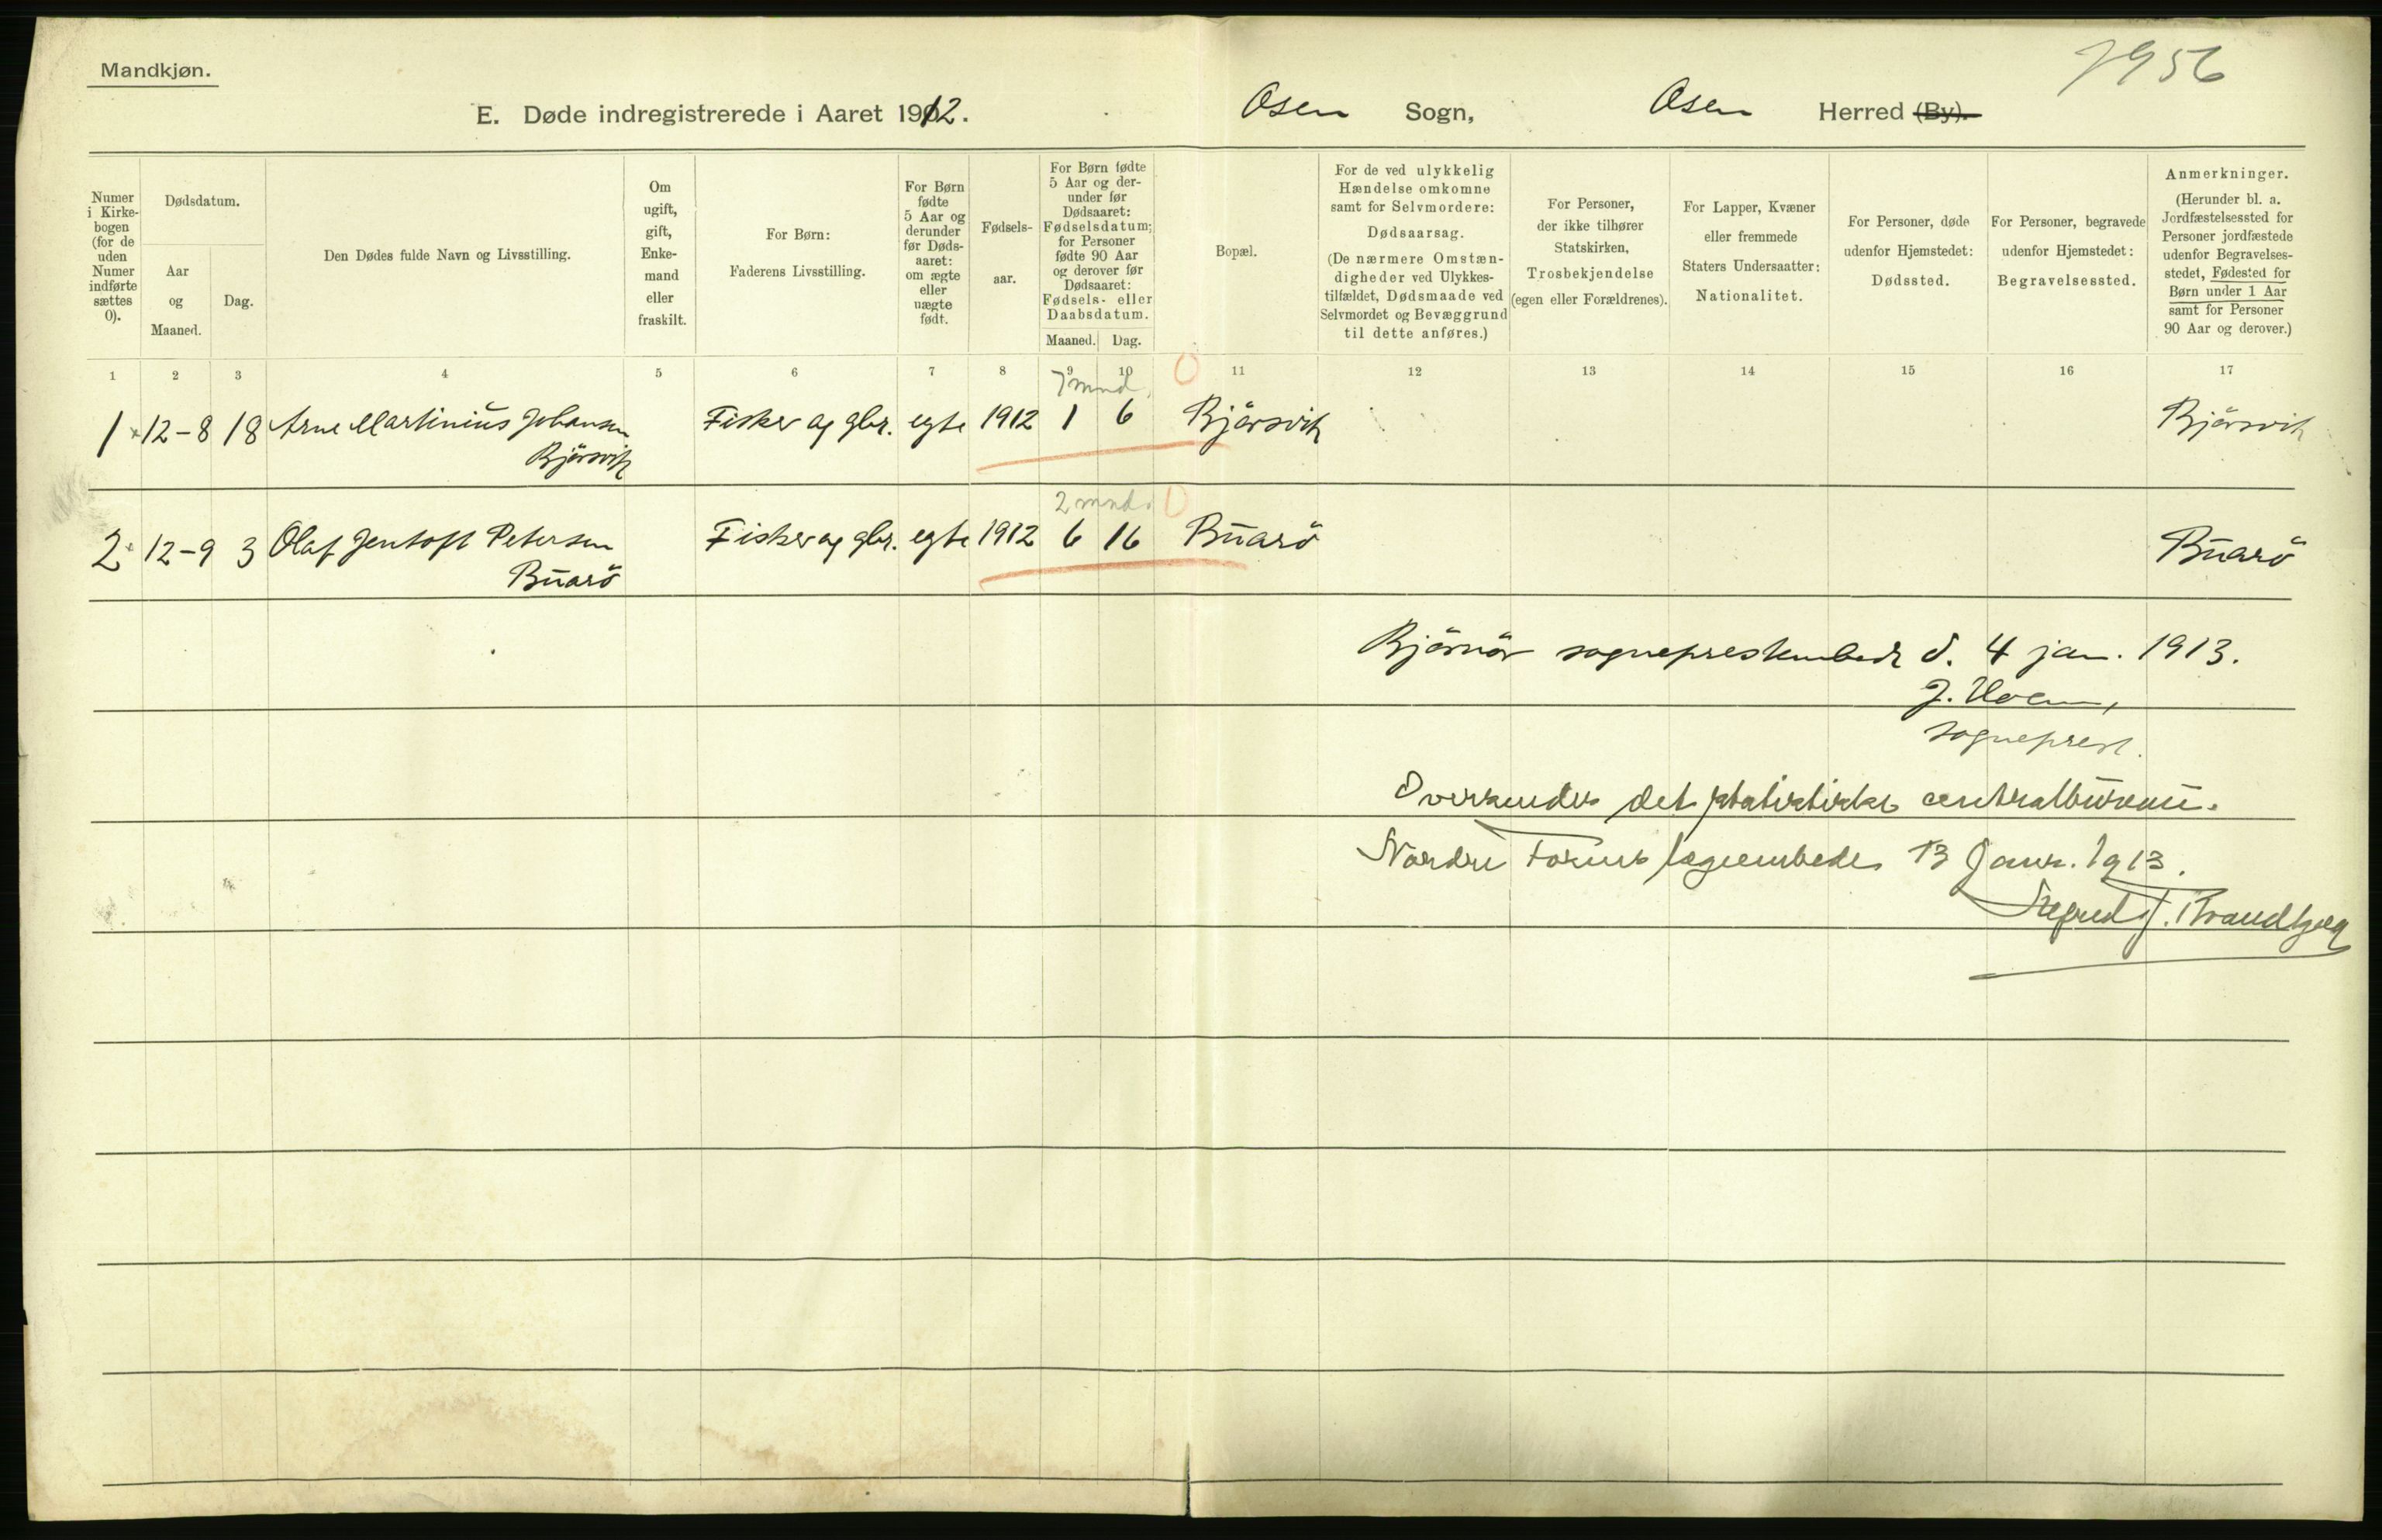 7956
Mandkjøn.
E. Døde indregistrerede i Aaret 1912.
Osen Sogn, Osen Herred (By).
Numer i Kirke-bogen (for de uden Numer indførte sættes 0).
Dødsdatum.
Aar og Maaned.
Dag.
Den Dødes fulde Navn og Livsstilling.
Om ugift, gift, Enke-mand eller fraskilt.
For Børn:
Faderens Livsstilling.
For Børn fødte 5 Aar og derunder før Døds-aaret: om ægte eller uægte født.
Fødsels-aar.
For Børn fødte 5 Aar og der-under før Dødsaaret: Fødselsdatum; for Personer fødte 90 Aar og derover før Dødsaaret: Fødsels- eller Daabsdatum.
Maaned. Dag.
Bopæl.
For de ved ulykkelig Hændelse omkomne samt for Selvmordere:
Dødsaarsag.
(De nærmere Omstæn-digheder ved Ulykkes-tilfældet, Dødsmaade ved Selvmordet og Bevæggrund til dette anføres.)
For Personer, der ikke tilhører Statskirken,
Trosbekjendelse
(egen eller Forældrenes).
For Lapper, Kvæner eller fremmede Staters Undersaatter:
Nationalitet.
For Personer, døde udenfor Hjemstedet:
Dødssted.
For Personer, begravede udenfor Hjemstedet:
Begravelsessted.
Anmerkninger.
(Herunder bl. a. Jordfæstelsessted for Personer jordfæstede udenfor Begravelses-stedet, Fødested for Børn under 1 Aar samt for Personer 90 Aar og derover.)
1 2 3 4 5 6 7 8 9 10 11 12 13 14 15 16 17
7 mnd. 0
1 12-8 18 Arne Martinius Johansen Fisker og gbr. egte 1912 1 6 Bjørsvik Bjørsvik
Bjørsvik
2 mnd. 0
2 12-9 3 Olaf Jentoft Petersen Fisker og gbr. egte 1912 6 16 Buarö Buarö
Buarö
Bjørnör sogneprestembede d. 4 jan. 1913.
J. Hoem,
sogneprest.
Oversendes det statistiske centralbureau.
Nordre Fosens lægeembede 13 Janr. 1913.